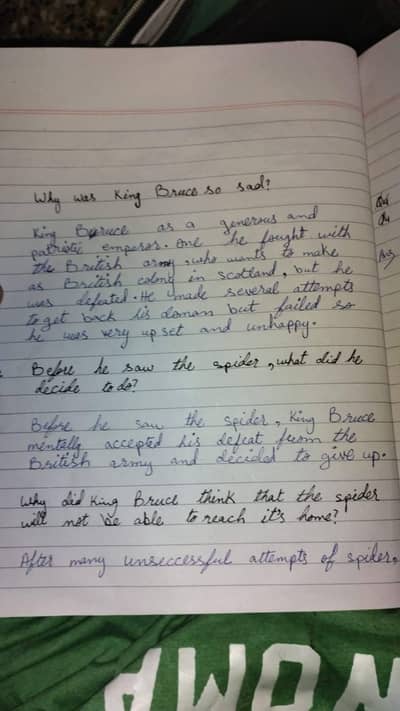 Why was King Bruce so sad?
King Buruce as a generous and
patriotic emperor. One he fought with
the British army, who wants to make
as British colony in scotland, but he
was defeated. He made several attempts
to get back his doman but failed so
he was very upset and unhappy.
Before he saw the spider, what did he
decide to do?
Before he saw the spider, King Bruce
mentally accepted his defeat from the
British army and decided to give up.
Why did King Bruce think that the spider
will not be able to reach it's home?
After many unseccessful attempts of spider,
Ans
WOMA